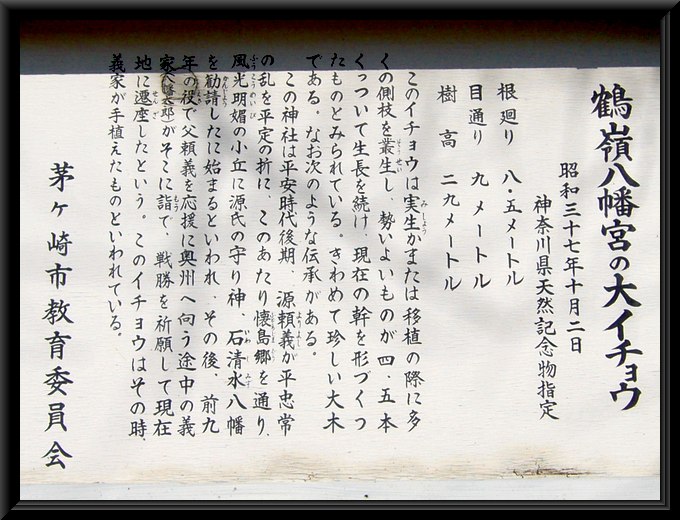 鶴嶺八幡宮の大イチョウ
昭和三十七年十月二日
神奈川県天然記念物指定
根廻り 八・五メートル
目通り 九メートル
樹高 二九メートル
このイチョウは実生かまたは移植の際に多
くの側枝を叢生し、勢いよいものが四、五本
くっついて生長を続け、現在の幹を形づくっ
たものとみられている。きわめて珍しい大木
である。なお次のような伝承がある。
この神社は平安時代後期、源頼義が平忠常
の乱を平定の折に、このあたり懐島郷を通り、
風光明媚の小丘に源氏の守り神、石清水八幡
を勧請したに始まるといわれ、その後、前九
年の役で父頼義を応援に奥州へ向う途中の義
家八幡太郎がそこに詣で、戦勝を祈願して現在
地に遷座したという。このイチョウはその時、
義家が手植えたものといわれている。
茅ヶ崎市教育委員会